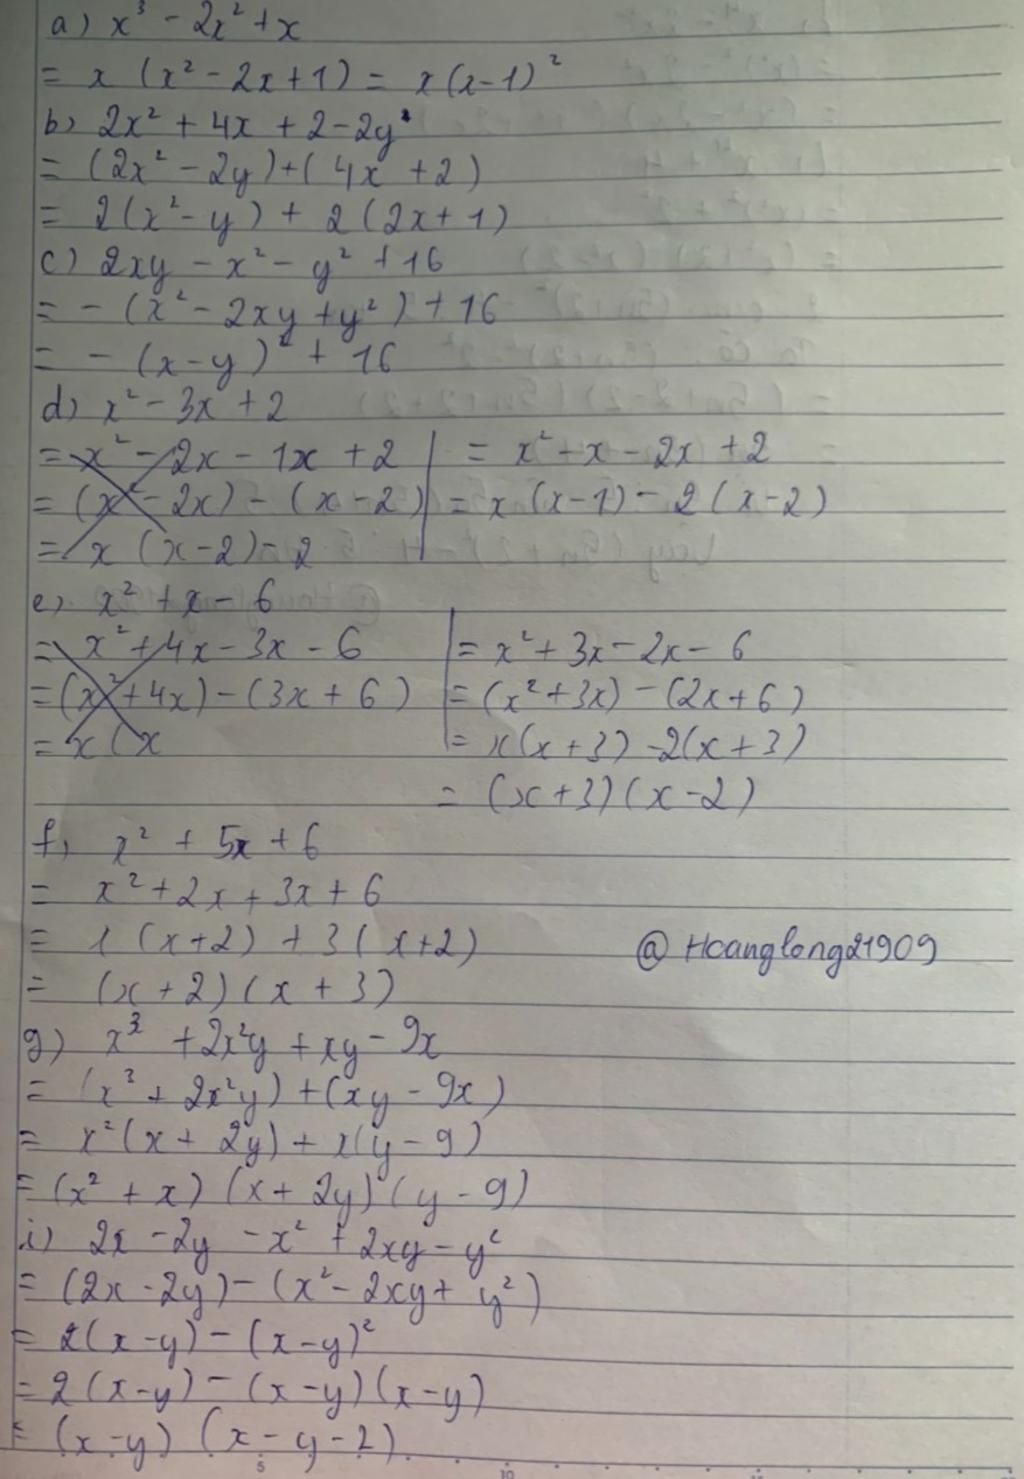 a) x³ - 2x² + x
= x (x² - 2x + 1) = x(x-1)²
b) 2x² + 4x + 2 - 2y²
= (2x² - 2y) + (4x + 2)
= 2(x² - y) + 2(2x + 1)
c) 2xy - x² - y² + 16
= - (x² - 2xy + y²) + 16
= - (x - y)² + 16
d) x² - 3x + 2
= x² - 2x - 1x + 2 | = x² - x - 2x + 2
= (x² - 2x) - (x - 2) | = x (x - 1) - 2 (x - 2)
= x (x - 2) - 2
e) x² + x - 6
= x² + 4x - 3x - 6 | = x² + 3x - 2x - 6
= (x² + 4x) - (3x + 6) | = (x² + 3x) - (2x + 6)
= x (x | = x(x + 3) - 2(x + 3)
= (x + 3) (x - 2)
f) x² + 5x + 6
= x² + 2x + 3x + 6
= 1 (x + 2) + 3 (x + 2)
@ Hoanglong21909
= (x + 2) (x + 3)
g) x³ + 2x²y + xy - 9x
= (x³ + 2x²y) + (xy - 9x)
= x² (x + 2y) + x(y - 9)
= (x² + x) (x + 2y) (y - 9)
i) 2x - 2y - x² + 2xy - y²
= (2x - 2y) - (x² - 2xy + y²)
= 2(x - y) - (x - y)²
= 2 (x - y) - (x - y) (x - y)
= (x - y) (x - y - 2)
5 10